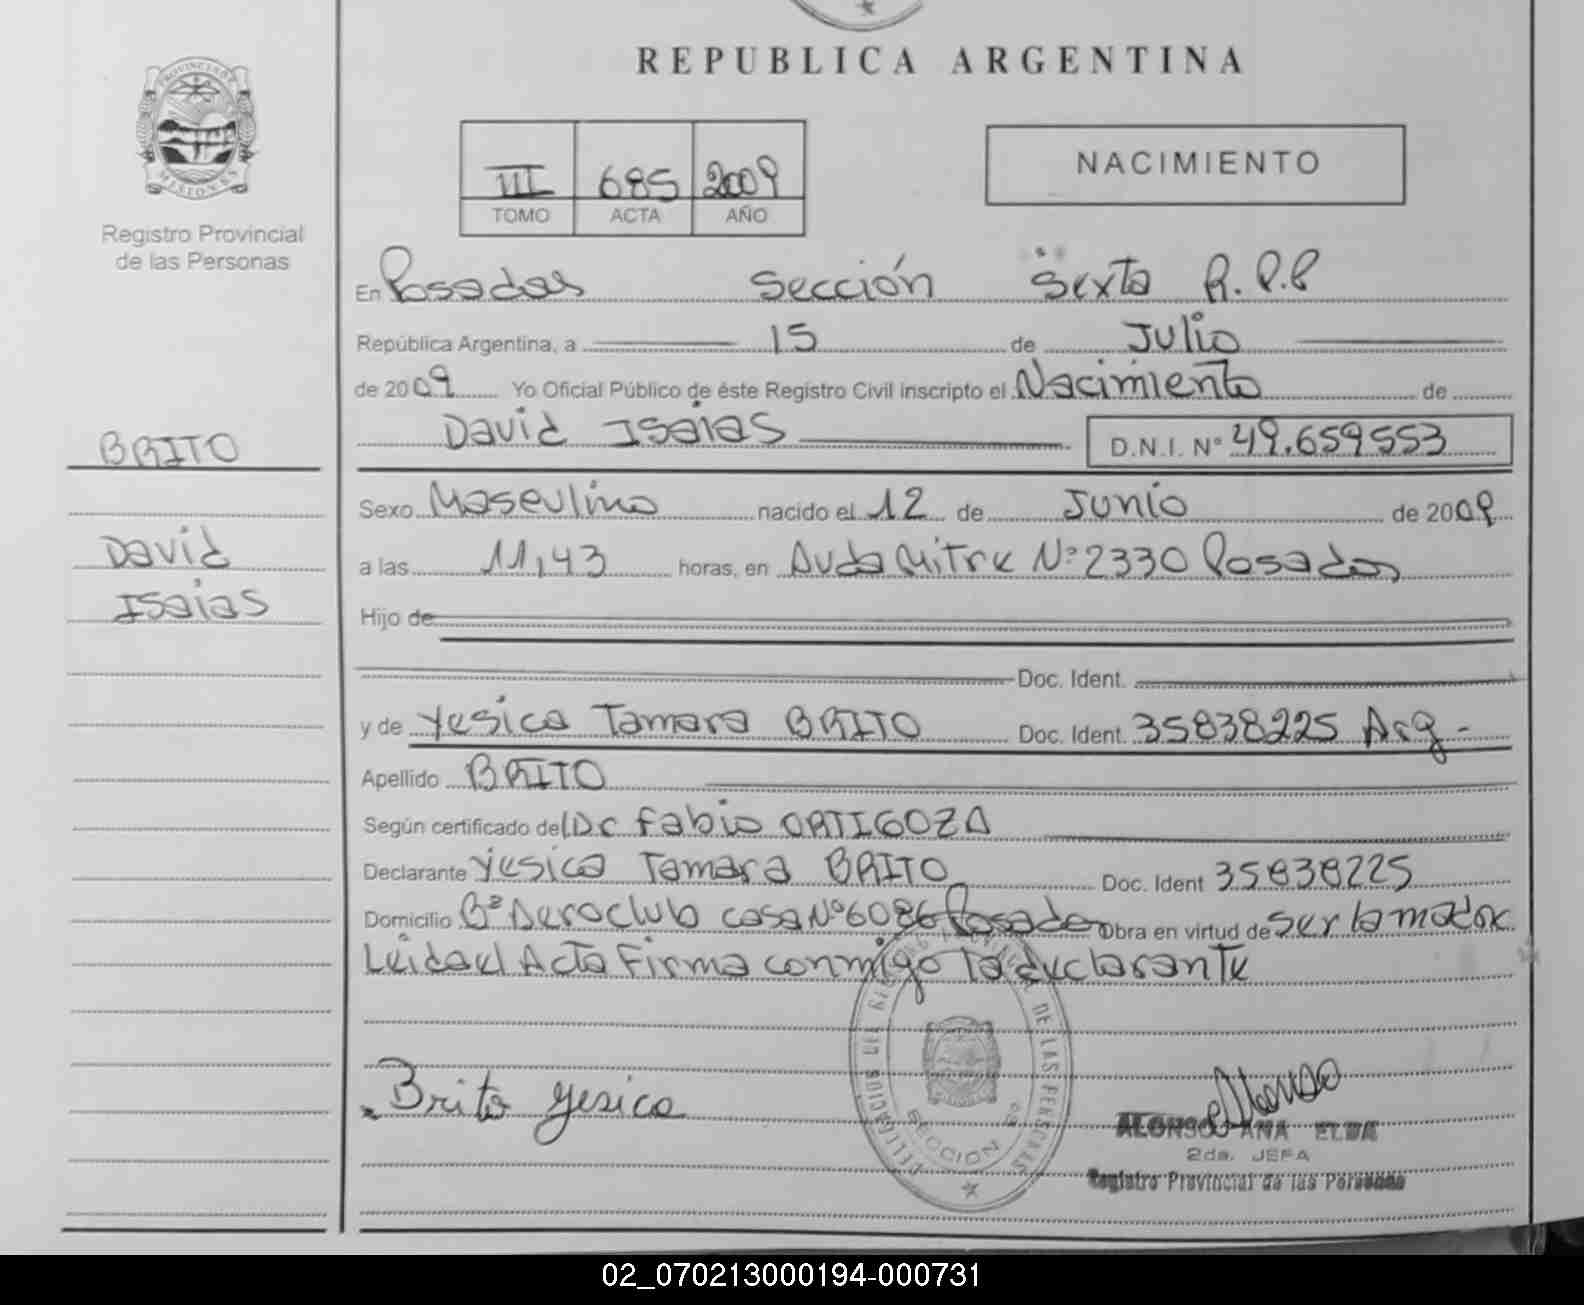 REPUBLICA ARGENTINA
PROVINCIA DE
MISIONES
Registro Provincial
de las Personas
III 685 2009
TOMO ACTA AÑO
NACIMIENTO
En Posadas Sección Sexta R.P.P
República Argentina, a 15 de Julio
de 2009 Yo Oficial Público de éste Registro Civil inscripto el Nacimiento de
David Isaias D.N.I. Nº 49.659553
BRITO
David
Isaias
Sexo Masculino nacido el 12 de Junio de 2009
a las 11,43 horas, en Avda Mitre Nº 2330 Posadas
Hijo de
Doc. Ident.
y de Yesica Tamara BRITO Doc. Ident. 35838225 Arg -
Apellido BRITO
Según certificado del Dr Fabio ORTIGOZA
Declarante Yesica Tamara BRITO Doc. Ident 35838225
Domicilio Bº Aeroclub casa Nº 6086 Posadas Obra en virtud de ser la madre
Leida el Acta Firma conmigo la declarante
DE LAS PERSONAS
SECCION
Brito Yesica
Alonso
ALONSO ANA ELBA
2da. JEFA
Registro Provincial de las Personas
02_070213000194-000731